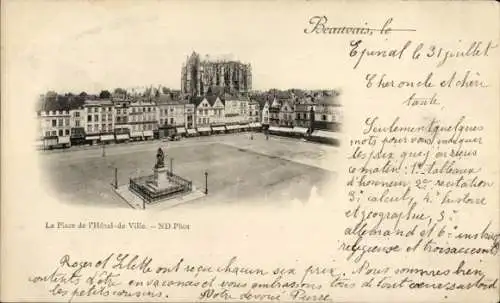 Beauvais, le
Epinal 31 juillet
Cher oncle et chère
tante,
Seulement quelques
mots pour vous marquer
les prix que j'ai reçus
ce matin: 1° tableaux
d'honneur, 2° recitation
3° calcul, 4° histoire
et géographie, 5°
allemand et 6° ins
religieuse et trois
La Place de l'Hôtel-de-Ville. — ND Phot
Roger et Lilette ont reçu chacun six prix. Nous sommes bien
contents d'être en vacances et vous embrassons tous tout
les petits cousins. Votre Pierre